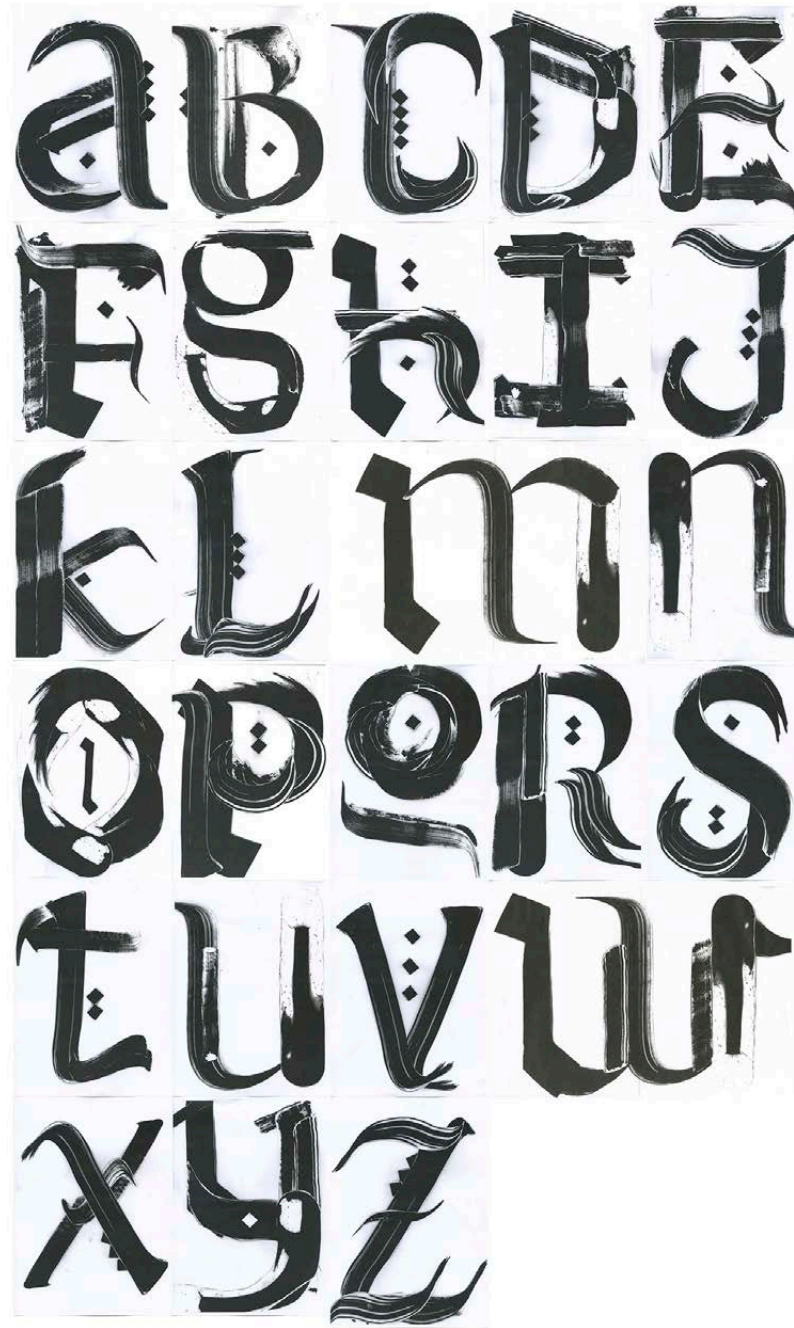 a B C D E
F g h I J
k L m n
O P Q R S
t u v w
x y z